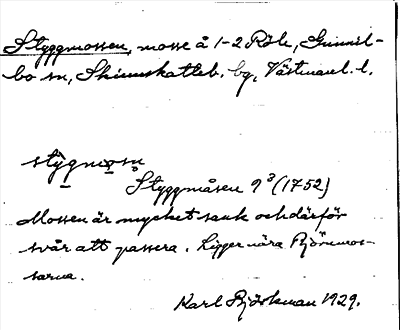 Styggmossen, mosse å 1-2 Röle, Gunnil-
bo sn, Skinnskatteb. bg, Västmanl. l.
stỳgmo̱sn
Styggmåsen 9³ (1752)
Mossen är mycket sank och därför
svår att passera. Ligger nära Björnmos-
sarna.
Karl Björkman 1929.